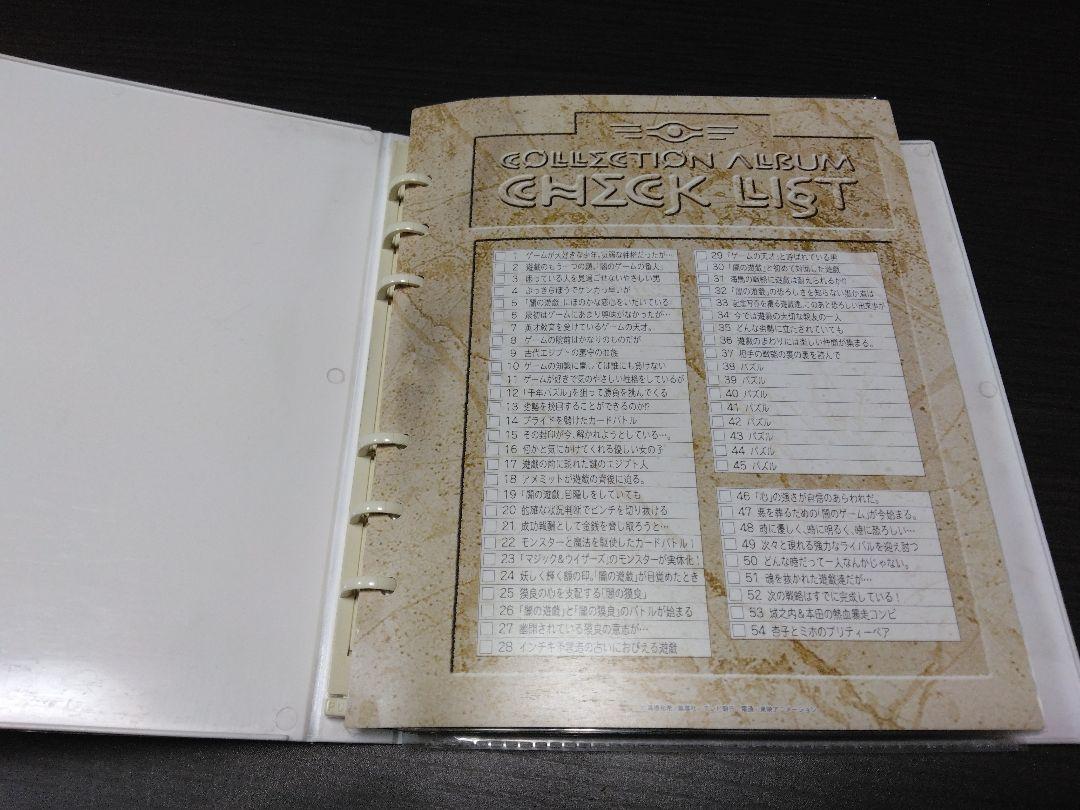 COLLECTION ALBUM
CHECK LIST
1 ゲームが大好きな少年。気弱な性格だったが…
2 遊戯のもう一つの顔。「闇のゲームの番人」
3 困っている人を見過ごせないやさしい男
4 ぶっきらぼうでケンカっ早いが
5 「闇の遊戯」にほのかな恋心をいだいている
6 最初はゲームにあまり興味がなかったが…
7 英才教育を受けているゲームの天才。
8 ゲームの腕前はかなりのものだが
9 古代エジプトの墓守の一族
10 ゲームの知識に関しては誰にも負けない
11 ゲームが好きで気のやさしい性格をしているが
12 「千年パズル」を狙って勝負を挑んでくる
13 劣勢を挽回することができるのか!?
14 プライドを賭けたカードバトル
15 その封印が今、解かれようとしている…。
16 何かと気にかけてくれる優しい女の子
17 遊戯の前に現れた謎のエジプト人
18 アメミットが遊戯の背後に迫る。
19 「闇の遊戯」目隠しをしていても
20 的確な状況判断でピンチを切り抜ける
21 成功報酬として金銭を脅し取ろうと…
22 モンスターと魔法を駆使したカードバトル！
23 「マジック&ウィザーズ」のモンスターが実体化！
24 妖しく輝く額の印。「闇の遊戯」が目覚めたとき
25 獏良の心を支配する「闇の獏良」
26 「闇の遊戯」と「闇の獏良」のバトルが始まる
27 幽閉されている獏良の意志が…
28 インチキ予言者の占いにおびえる遊戯
29 「ゲームの天才」と呼ばれている男
30 「闇の遊戯」と初めて対面した遊戯
31 海馬の戦略に遊戯は耐えられるか!?
32 「闇の遊戯」の恐ろしさを知らない
33 記念写真を撮る遊戯達。このあと恐ろしい出来事が
34 今では遊戯の大切な親友の一人
35 どんな劣勢に立たされていても
36 遊戯のまわりには楽しい仲間が集まる。
37 相手の戦略の裏の裏を読んで
38 パズル
39 パズル
40 パズル
41 パズル
42 パズル
43 パズル
44 パズル
45 パズル
46 「心」の強さが自信のあらわれだ。
47 悪を葬るための「闇のゲーム」が今始まる。
48 時に優しく、時に明るく、時に恐ろしい…
49 次々と現れる強力なライバルを迎え討つ
50 どんな時だって一人なんかじゃない。
51 魂を抜かれた遊戯達だが…
52 次の戦略はすでに完成している！
53 城之内&本田の熱血暴走コンビ
54 杏子とミホのプリティーペア
©高橋和希／集英社・テレビ朝日・電通・東映アニメーション